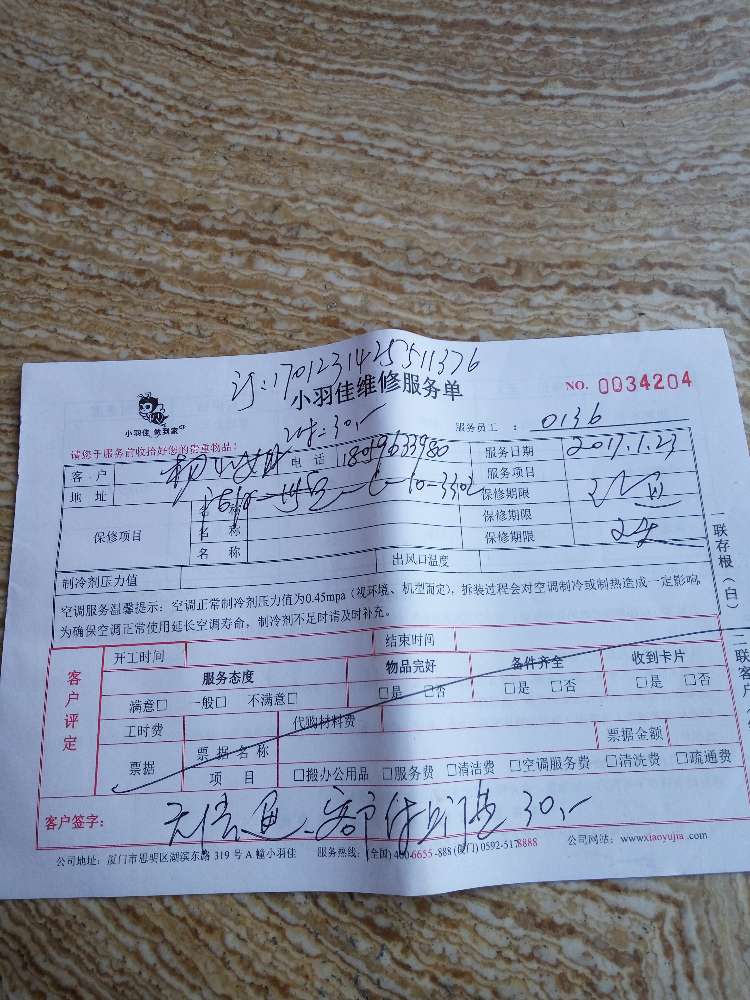 订:1701231425511376
小羽佳维修服务单
NO. 0034204
小羽佳 做到家
订:30,-
服务员工 : 0136
请您于服务前收拾好您的贵重物品:
客 户 电 话 服务日期 2017.1.23
地 址 6-10-3302 服务项目
保修项目 名 称 保修期限
名 称 保修期限
名 称 保修期限
制冷剂压力值 出风口温度
空调服务温馨提示:空调正常制冷剂压力值为0.45mpa (视环境、机型而定),拆装过程会对空调制冷或制热造成一定影响,
为确保空调正常使用延长空调寿命,制冷剂不足时请及时补充。
一联存根(白)
二联客户
客户评定
开工时间 结束时间
服务态度 物品完好 备件齐全 收到卡片
满意□ 一般□ 不满意□ □是 □否 □是 □否 □是 □否
工时费 代购材料费
票据 票 据 名 称 票据金额
项 目 □搬办公用品 □服务费 □清洁费 □空调服务费 □清洗费 □疏通费
客户签字: 30,-
公司地址:厦门市思明区湖滨东路 319 号 A 幢小羽佳 服务热线:(全国) 400-6655-888 (厦门) 0592-5178888 公司网站:www.xiaoyujia .com